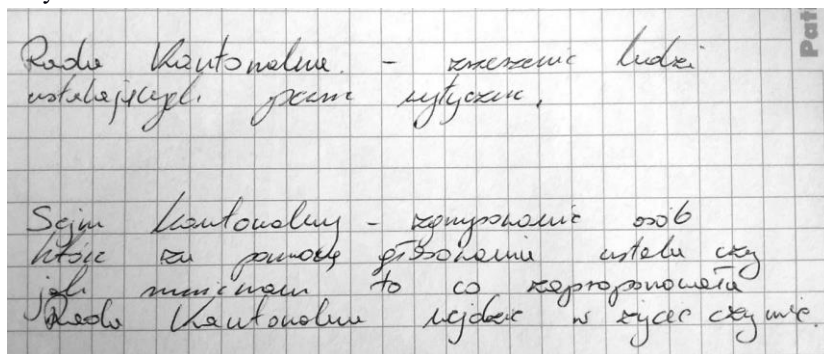 Rada Kantonalna. - zrzeszenie ludzi
ustalających pewne wytyczne.
Sejm kantonalny - zgrupowanie osób
które za pomocą głosowania ustala czy
to co zaproponowała
Rada Kantonalna wejdzie w życie czy nie.
Pat